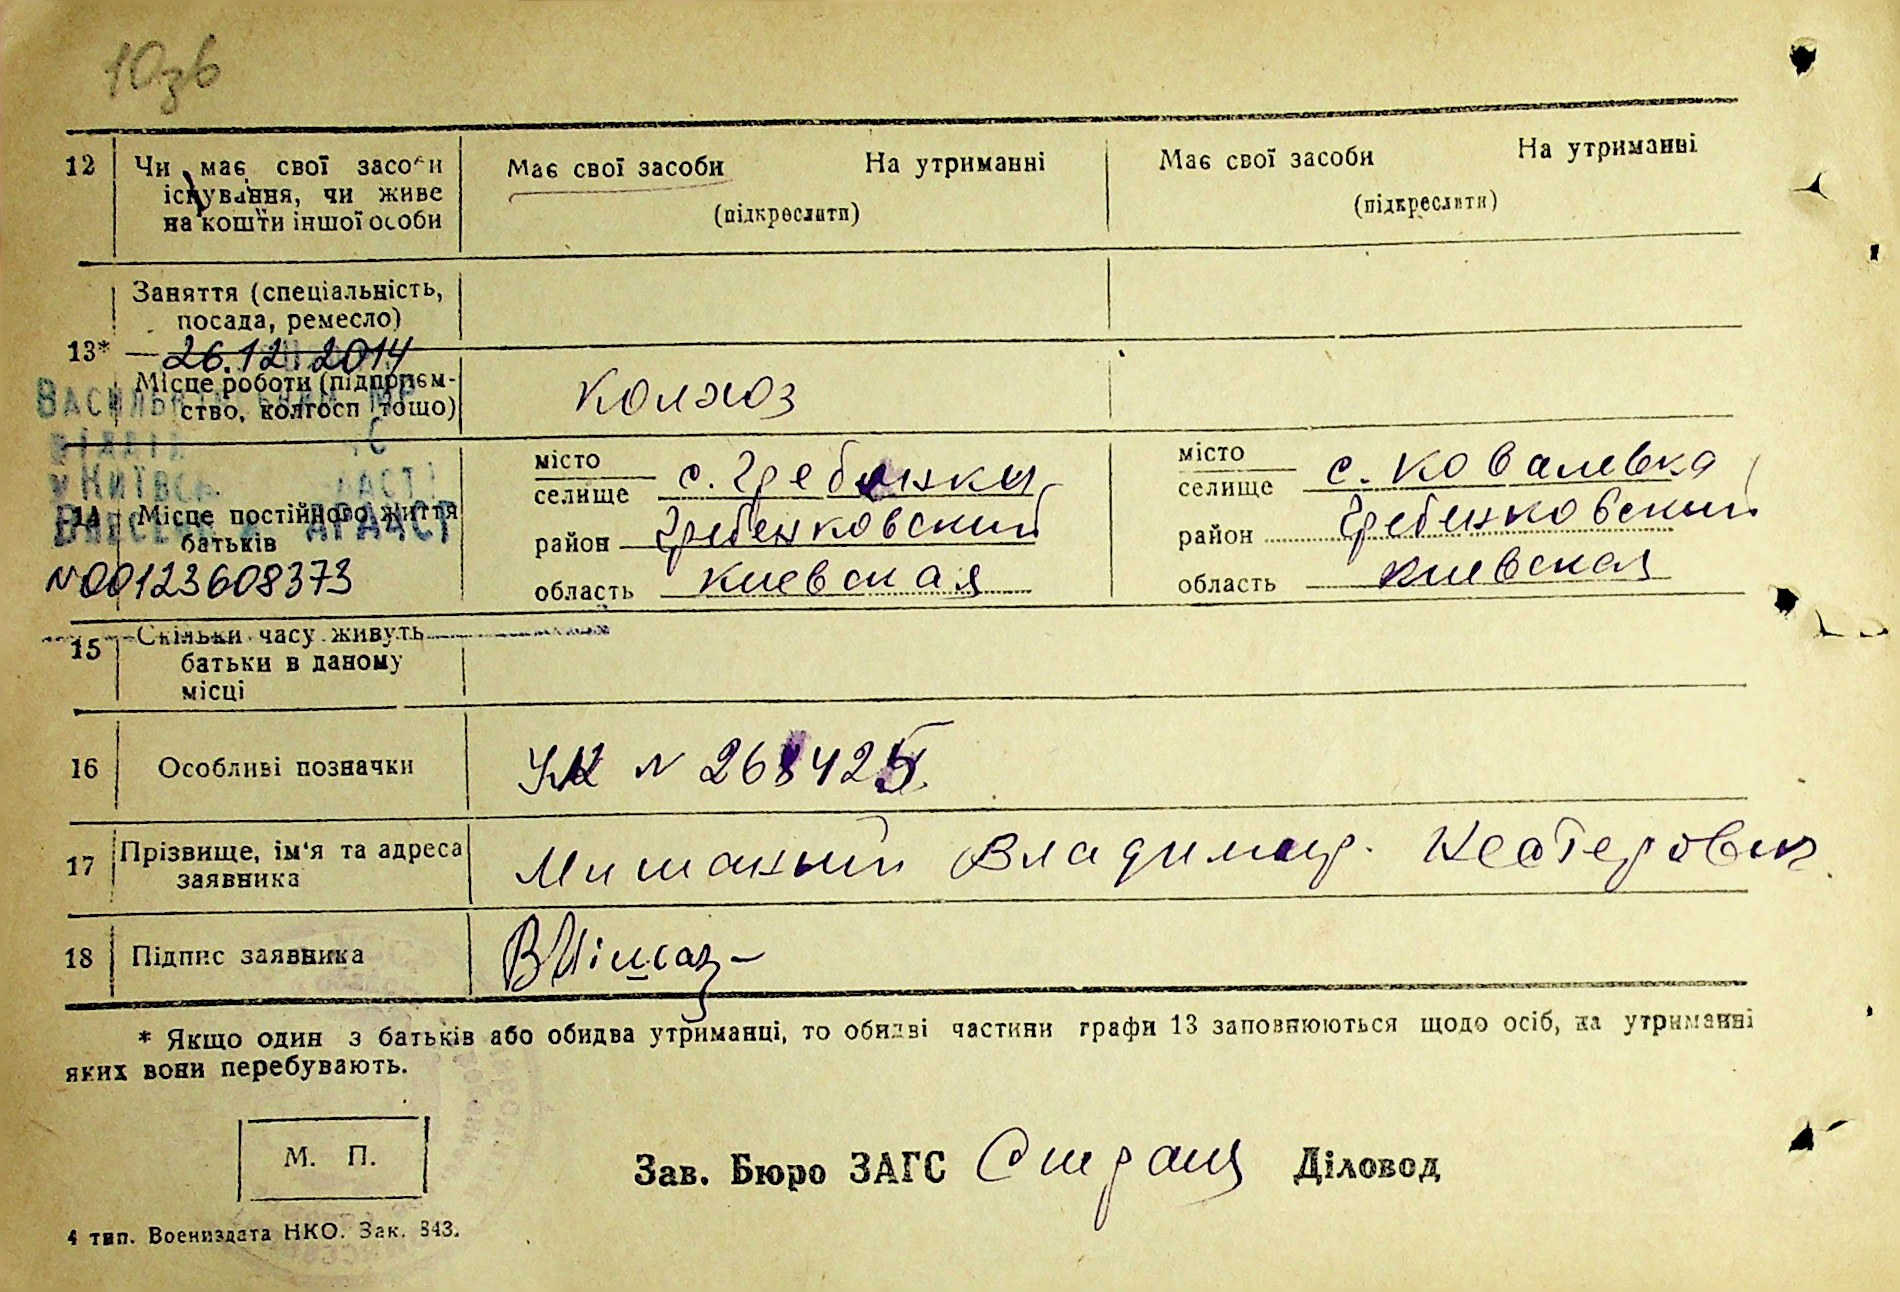 10зв
12 Чи має свої засоби Має свої засоби На утриманні Має свої засоби На утриманні
існування, чи живе
на кошти іншої особи (підкреслити) (підкреслити)
Заняття (спеціальність,
посада, ремесло)
13*
26.12.2014
Місце роботи (підприєм-
ство, колгосп тощо) Колхоз
14 Місце постійного життя
батьків
місто
селище с. Гребинки
район Гребенковский
область Киевская
місто
селище с. Ковалевка
район Гребенковский
область Киевская
N 00123608373
15 Скільки часу живуть
батьки в даному
місці
16 Особливі позначки УК N 268425
17 Прізвище, ім'я та адреса
заявника Владимир Нестерович
18 Підпис заявника
* Якщо один з батьків або обидва утриманці, то обидві частини графи 13 заповнюються щодо осіб, на утриманні
яких вони перебувають.
М. П.
Зав. Бюро ЗАГС Діловод
4 тип. Воениздата НКО. Зак. 843.